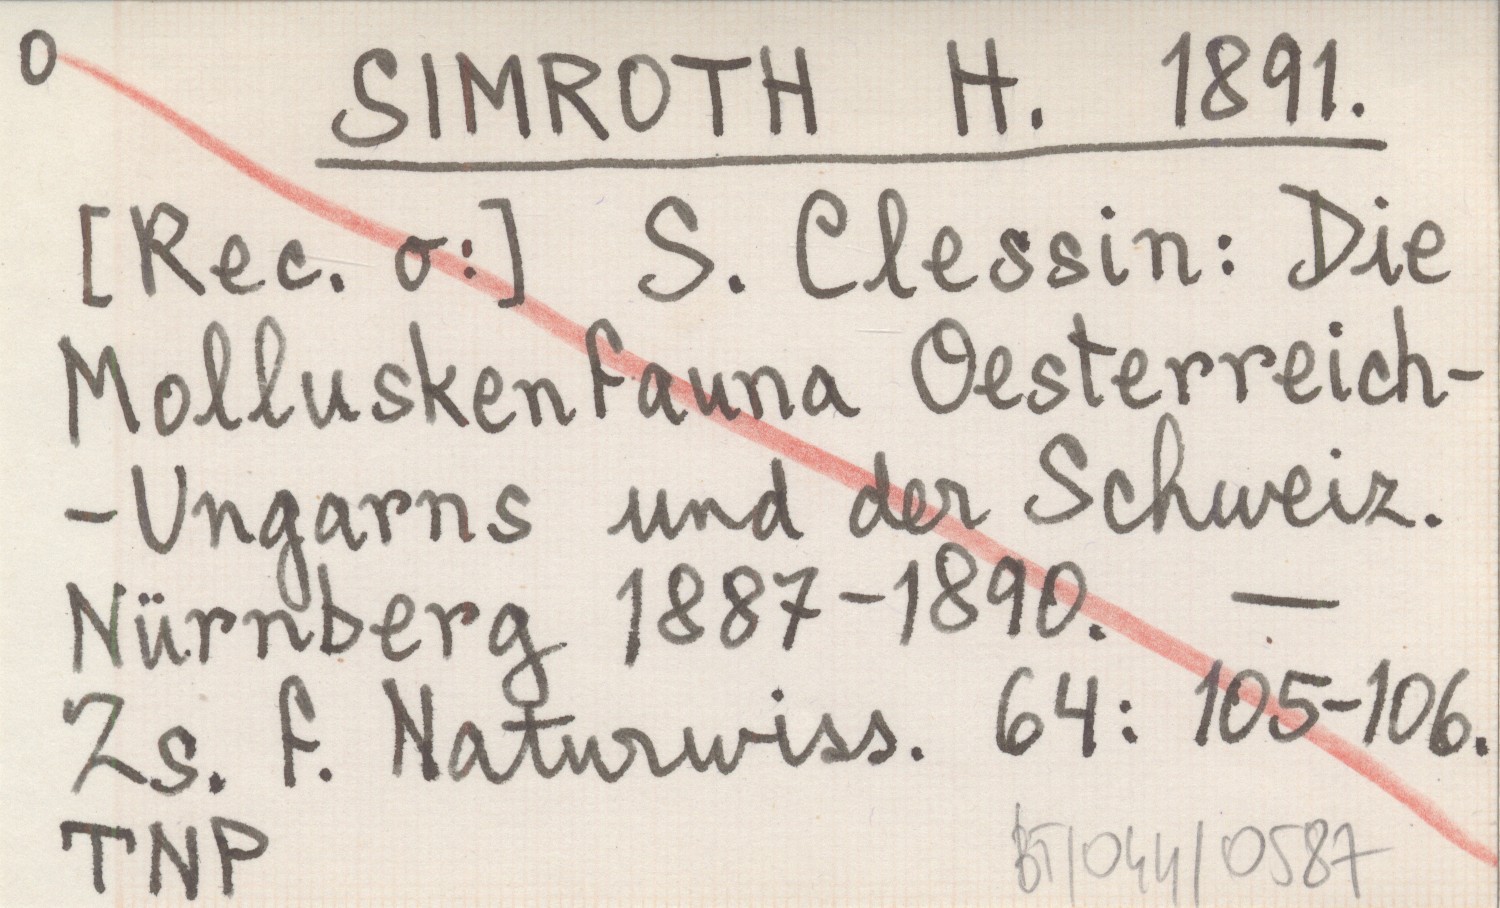 O SIMROTH H. 1891.
[Rec. o:] S. Clessin: Die
Molluskenfauna Oesterreich-
-Ungarns und der Schweiz.
Nürnberg 1887-1890. —
Zs. f. Naturwiss. 64: 105-106.
TNP
BT/044/0587